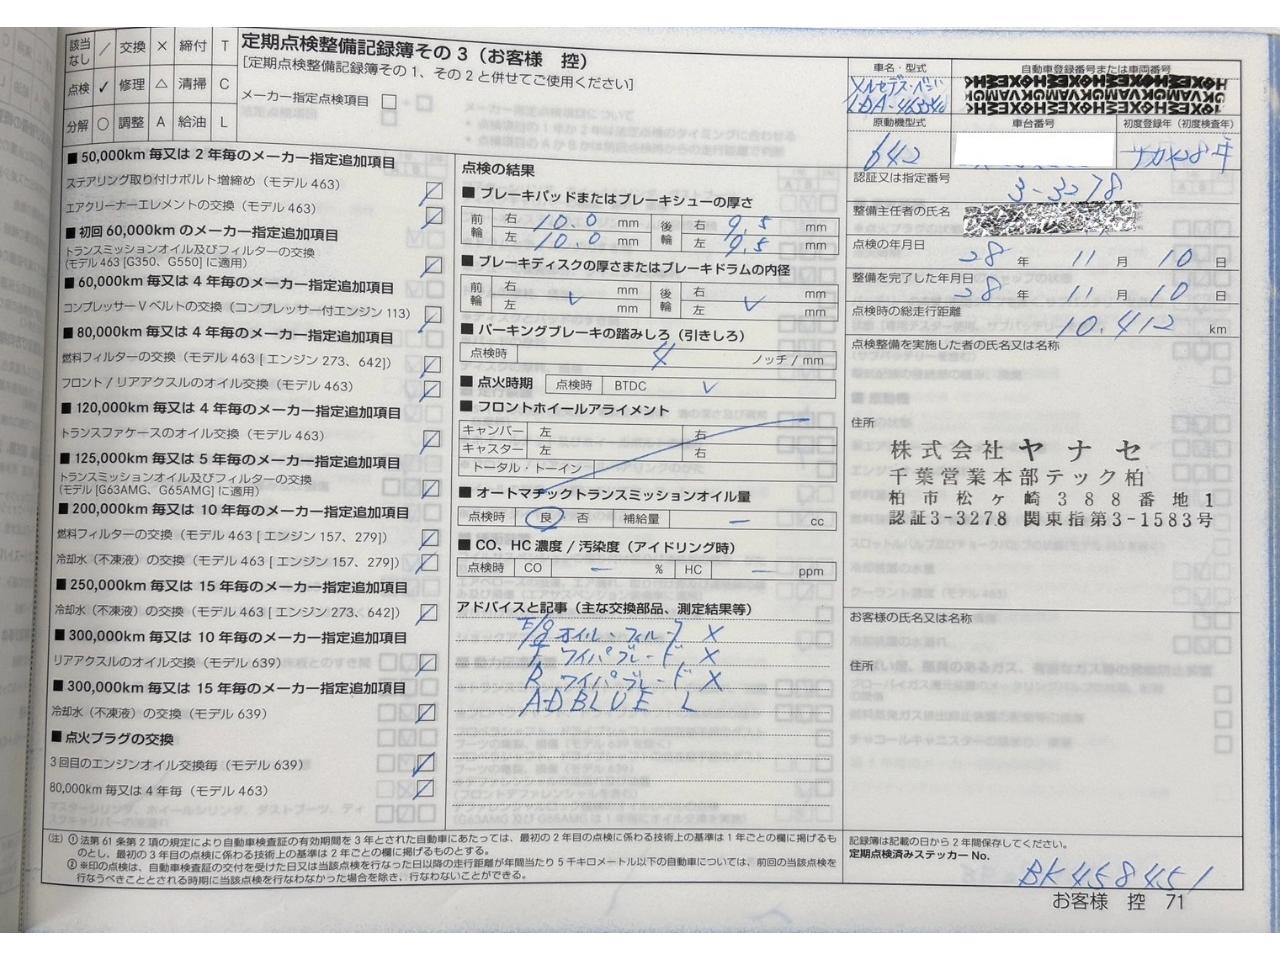 該当なし ／ 交換 × 締付 T
点検 ✓ 修理 △ 清掃 C
分解 ○ 調整 A 給油 L
定期点検整備記録簿その3（お客様　控）
[定期点検整備記録簿その1、その2と併せてご使用ください]
メーカー指定点検項目 □
■ 50,000km 毎又は 2 年毎のメーカー指定追加項目
ステアリング取り付けボルト増締め（モデル 463）
エアクリーナーエレメントの交換（モデル 463）
■ 初回 60,000km のメーカー指定追加項目
トランスミッションオイル及びフィルターの交換
(モデル 463 [G350、G550] に適用)
■ 60,000km 毎又は 4 年毎のメーカー指定追加項目
コンプレッサー V ベルトの交換（コンプレッサー付エンジン 113）
■ 80,000km 毎又は 4 年毎のメーカー指定追加項目
燃料フィルターの交換（モデル 463 [ エンジン 273、642]）
フロント / リアアクスルのオイル交換（モデル 463）
■ 120,000km 毎又は 4 年毎のメーカー指定追加項目
トランスファケースのオイル交換（モデル 463）
■ 125,000km 毎又は 5 年毎のメーカー指定追加項目
トランスミッションオイル及びフィルターの交換
(モデル [G63AMG、G65AMG] に適用)
■ 200,000km 毎又は 10 年毎のメーカー指定追加項目
燃料フィルターの交換（モデル 463 [ エンジン 157、279]）
冷却水（不凍液）の交換（モデル 463 [ エンジン 157、279]）
■ 250,000km 毎又は 15 年毎のメーカー指定追加項目
冷却水（不凍液）の交換（モデル 463 [ エンジン 273、642]）
■ 300,000km 毎又は 10 年毎のメーカー指定追加項目
リアアクスルのオイル交換（モデル 639）
■ 300,000km 毎又は 15 年毎のメーカー指定追加項目
冷却水（不凍液）の交換（モデル 639）
■ 点火プラグの交換
3 回目のエンジンオイル交換毎（モデル 639）
80,000km 毎又は 4 年毎（モデル 463）
点検の結果
■ ブレーキパッドまたはブレーキシューの厚さ
前輪 右 10.0 mm 後輪 右 9.5 mm
左 10.0 mm 左 9.5 mm
■ ブレーキディスクの厚さまたはブレーキドラムの内径
前輪 右 mm 後輪 右 mm
左 ✓ mm 左 ✓ mm
■ パーキングブレーキの踏みしろ（引きしろ）
点検時 4 ノッチ / mm
■ 点火時期 点検時 BTDC ✓
■ フロントホイールアライメント
キャンバー 左 右
キャスター 左 右
トータル・トーイン
■ オートマチックトランスミッションオイル量
点検時 良 否 補給量 ー cc
■ CO、HC 濃度 / 汚染度（アイドリング時）
点検時 CO ー % HC ー ppm
アドバイスと記事（主な交換部品、測定結果等）
E/g オイル・フィルター ×
F ワイパブレード ×
R ワイパブレード ×
ADBLUE L
車名・型式
メルセデス・ベンツ
LDA-463346
自動車登録番号または車両番号
原動機型式
642
車台番号
初度登録年（初度検査年）
28年
認証又は指定番号
3-3278
整備主任者の氏名
点検の年月日
28 年 11 月 10 日
整備を完了した年月日
28 年 11 月 10 日
点検時の総走行距離
10,412 km
点検整備を実施した者の氏名又は名称
住所
株式会社 ヤナセ
千葉営業本部テック柏
柏市松ヶ崎388番地1
認証3-3278 関東指第3-1583号
お客様の氏名又は名称
住所
(注) ① 法第 61 条第 2 項の規定により自動車検査証の有効期間を 3 年とされた自動車にあたっては、最初の 2 年目の点検に係わる技術上の基準は 1 年ごとの欄に掲げるも
のとし、最初の 3 年目の点検に係わる技術上の基準は 2 年ごとの欄に掲げるものとする。
② ※印の点検は、自動車検査証の交付を受けた日又は当該点検を行なった日以降の走行距離が年間当たり 5 千キロメートル以下の自動車については、前回の当該点検を
行なうべきこととされる時期に当該点検を行なわなかった場合を除き、行なわないことができる。
記録簿は記載の日から 2 年間保存してください。
定期点検済みステッカー No.
BK458451
お客様　控　71